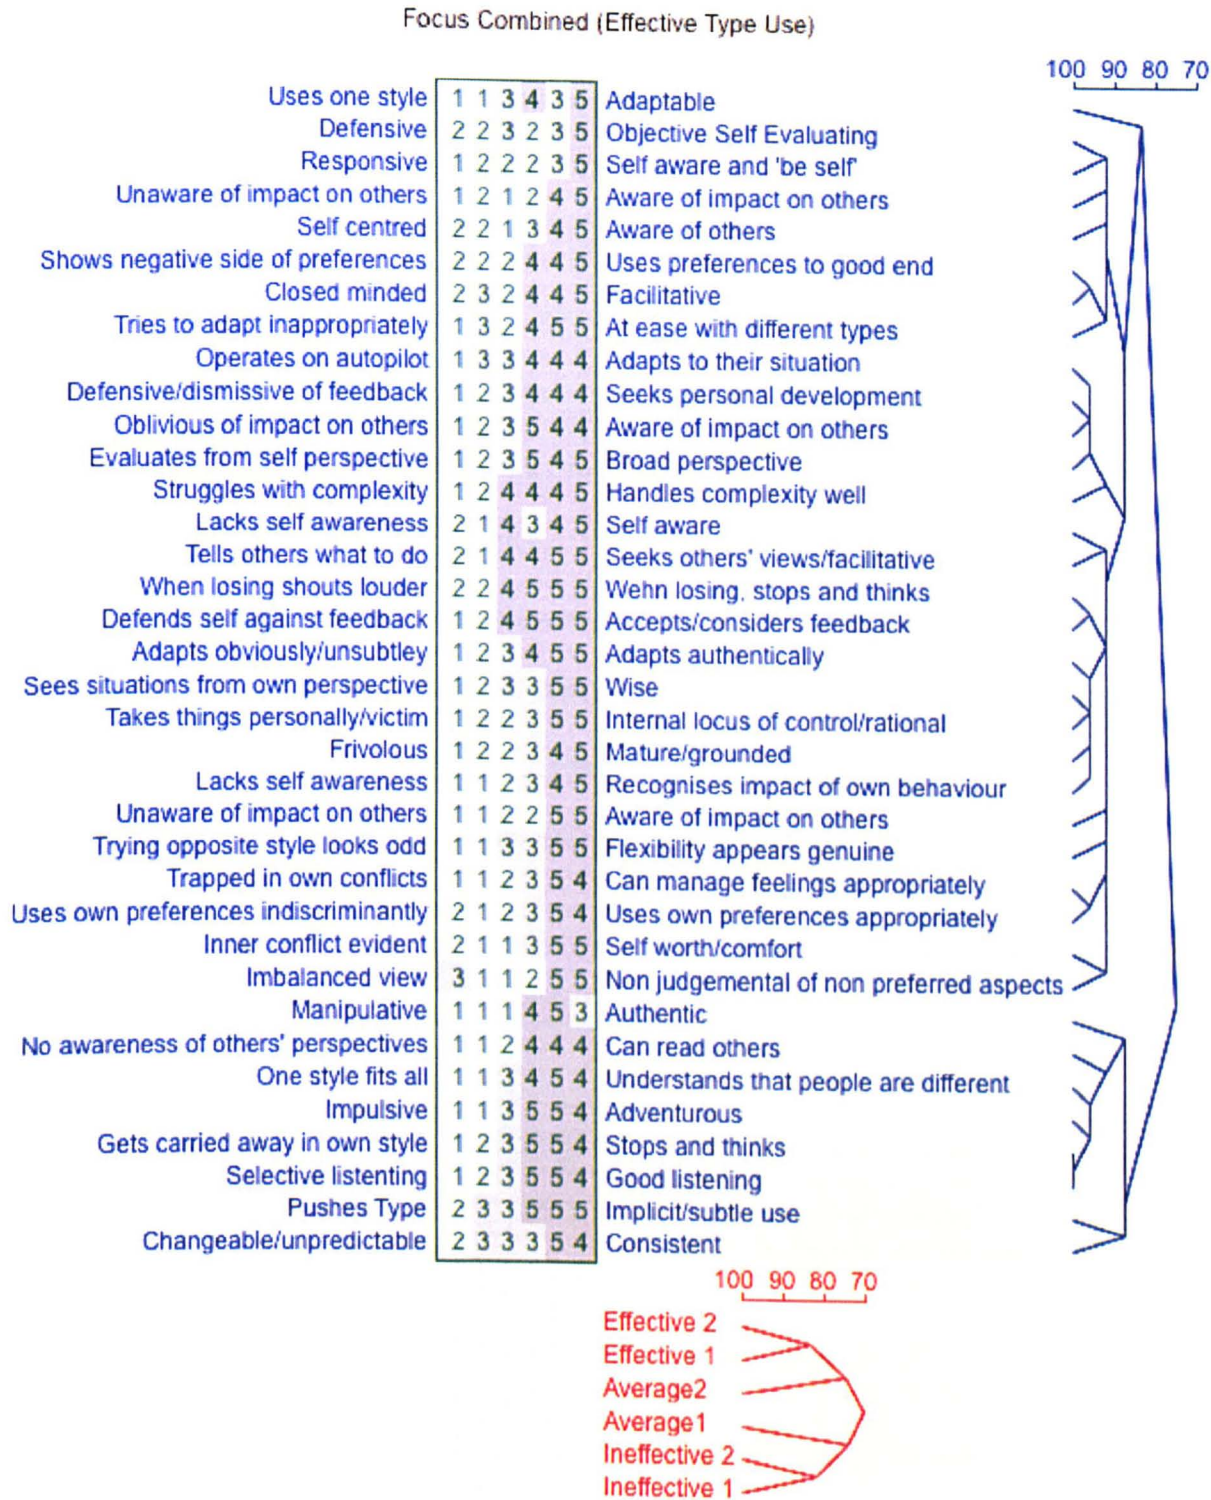 Focus Combined (Effective Type Use)
100 90 80 70
Uses one style 1 1 3 4 3 5 Adaptable
Defensive 2 2 3 2 3 5 Objective Self Evaluating
Responsive 1 2 2 2 3 5 Self aware and 'be self'
Unaware of impact on others 1 2 1 2 4 5 Aware of impact on others
Self centred 2 2 1 3 4 5 Aware of others
Shows negative side of preferences 2 2 2 4 4 5 Uses preferences to good end
Closed minded 2 3 2 4 4 5 Facilitative
Tries to adapt inappropriately 1 3 2 4 5 5 At ease with different types
Operates on autopilot 1 3 3 4 4 4 Adapts to their situation
Defensive/dismissive of feedback 1 2 3 4 4 4 Seeks personal development
Oblivious of impact on others 1 2 3 5 4 4 Aware of impact on others
Evaluates from self perspective 1 2 3 5 4 5 Broad perspective
Struggles with complexity 1 2 4 4 4 5 Handles complexity well
Lacks self awareness 2 1 4 3 4 5 Self aware
Tells others what to do 2 1 4 4 5 5 Seeks others' views/facilitative
When losing shouts louder 2 2 4 5 5 5 Wehn losing, stops and thinks
Defends self against feedback 1 2 4 5 5 5 Accepts/considers feedback
Adapts obviously/unsubtley 1 2 3 4 5 5 Adapts authentically
Sees situations from own perspective 1 2 3 3 5 5 Wise
Takes things personally/victim 1 2 2 3 5 5 Internal locus of control/rational
Frivolous 1 2 2 3 4 5 Mature/grounded
Lacks self awareness 1 1 2 3 4 5 Recognises impact of own behaviour
Unaware of impact on others 1 1 2 2 5 5 Aware of impact on others
Trying opposite style looks odd 1 1 3 3 5 5 Flexibility appears genuine
Trapped in own conflicts 1 1 2 3 5 4 Can manage feelings appropriately
Uses own preferences indiscriminantly 2 1 2 3 5 4 Uses own preferences appropriately
Inner conflict evident 2 1 1 3 5 5 Self worth/comfort
Imbalanced view 3 1 1 2 5 5 Non judgemental of non preferred aspects
Manipulative 1 1 1 4 5 3 Authentic
No awareness of others' perspectives 1 1 2 4 4 4 Can read others
One style fits all 1 1 3 4 5 4 Understands that people are different
Impulsive 1 1 3 5 5 4 Adventurous
Gets carried away in own style 1 2 3 5 5 4 Stops and thinks
Selective listenting 1 2 3 5 5 4 Good listening
Pushes Type 2 3 3 5 5 5 Implicit/subtle use
Changeable/unpredictable 2 3 3 3 5 4 Consistent
100 90 80 70
Effective 2
Effective 1
Average2
Average1
Ineffective 2
Ineffective 1